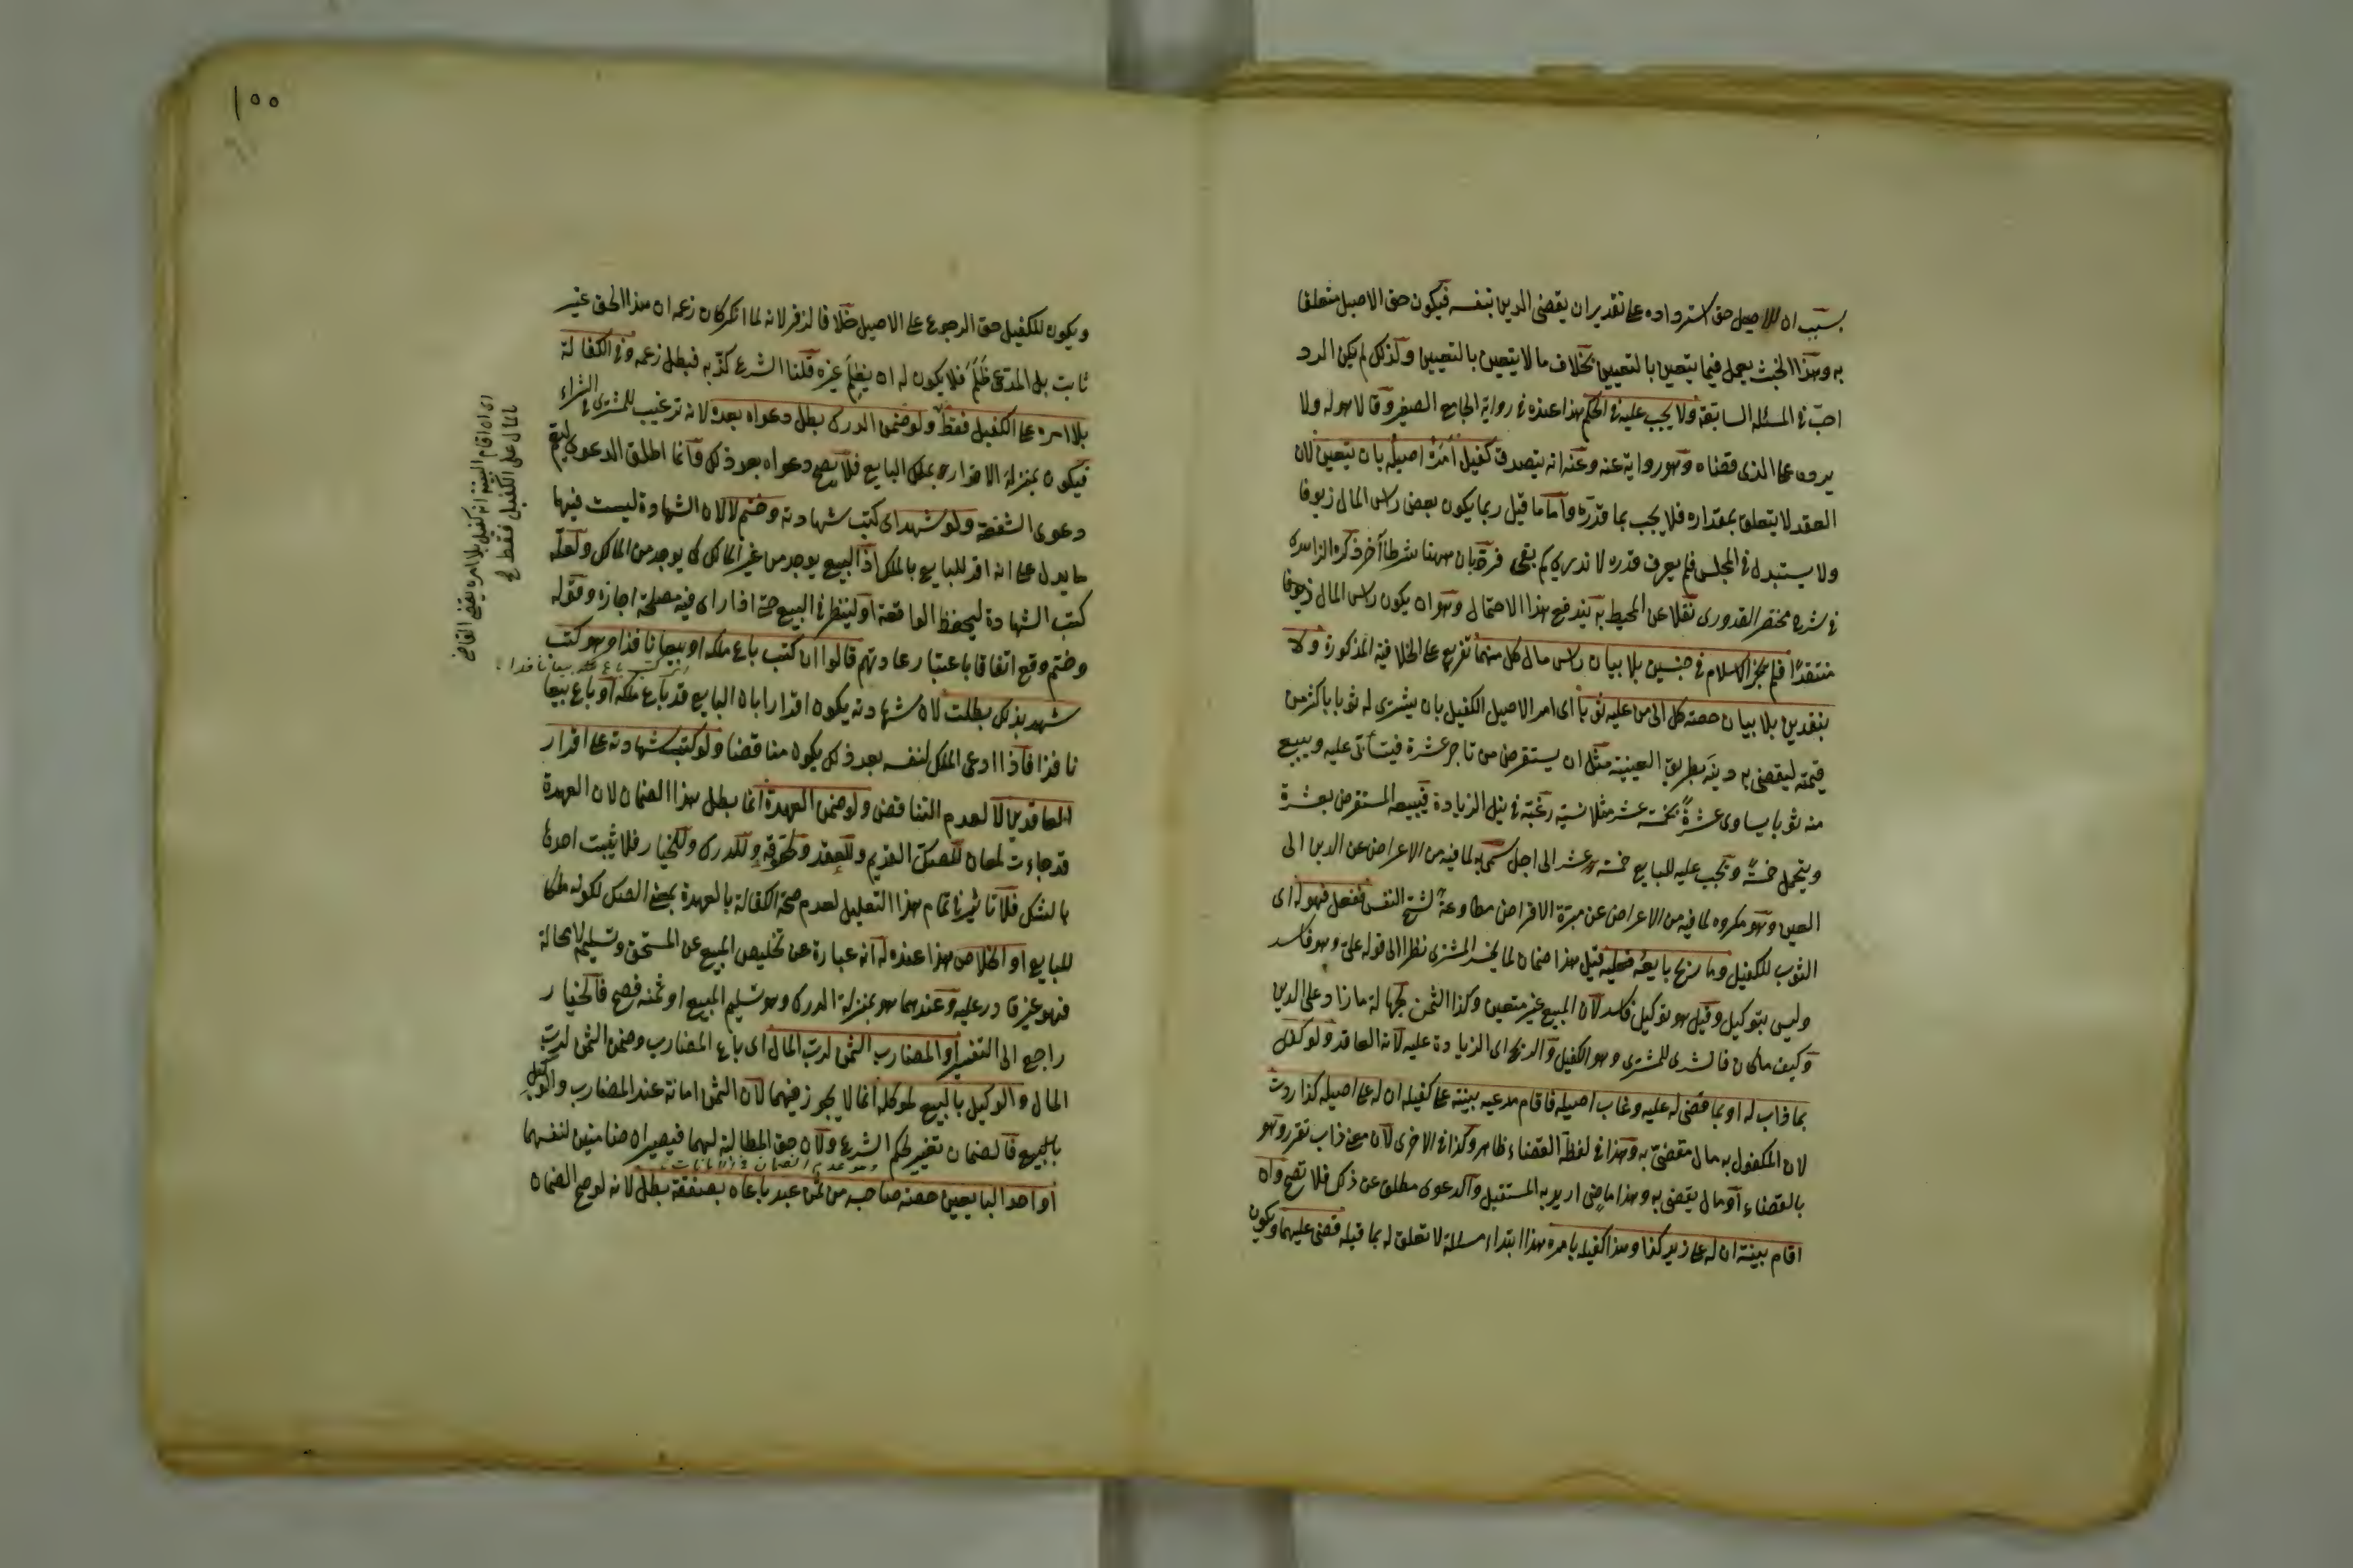 بسبب ان للاصيل حق استرداده على تقدير ان يقضى الدين بنفسه فيكون حق الاصيل متعلقا
به وهذا الخبث يعمل فيما يتعين بالتعيين بخلاف ما لا يتعين بالتعيين ولذلك لم يكن الرد
احب فى المسئلة السابقة ولا يجب عليه فى الحكم هذا عنده فى رواية الجامع الصغير وقالا هو له ولا
يرده على الذى قضاه وهو رواية عنه وعنه انه يتصدق كفيل امره اصيله بان يتعين لان
العقد لا يتعلق بمقداره فلا يجب بما قدره واما ما قيل ربما يكون بعض راس المال زيوفا
ولا يستبدل فى المجلس فلم يعرف قدره لا ندرى كم بقى فردّه بان ههنا شرطا آخر ذكره الزاهدى
فى شرح مختصر القدورى نقلا عن المحيط به يندفع هذا الاحتمال وهو ان يكون راس المال
منتقدا فلم يجز الاسلام فى جنسين بلا بيان راس مال كل منهما تفريع على الخلافية المذكورة ولا
بنقدين بلا بيان حصة كل الى من عليه ثوبا اى امر الاصيل الكفيل بان يشترى له ثوبا باكثر من
قيمته ليقضى به دينه بطريق العينة مثل ان يستقرض من تاجر عشرة فيتأبى عليه ويبيع
منه ثوبا يساوى عشرة بخمسة عشر مثلا نسية رغبة فى نيل الزيادة فيبيعه المستقرض بعشرة
ويتحمل خمسة ويجب عليه للبايع خمسة عشر الى اجل سمى به لما فيه من الاعراض عن الدين الى
العين وهو مكروه لما فيه من الاعراض عن مبرة الاقراض مطاوعة لشح النفس ففعل فهو له اى
الثوب للكفيل وما ربح بايعه فعليه قيل هذا ضمان لما يخسر المشترى نظرا الى قوله على وهو فاسد
وليس بتوكيل وقيل هو توكيل فاسد لان المبيع غير متعين وكذا الثمن لجهالة ما زاد على الدين
وكيف ما كان فالشرى للمشترى وهو الكفيل والربح اى الزيادة عليه لانه العاقد ولو كفل
بما ذاب له او بما قضى له عليه وغاب اصيله فاقام مدعيه بينة على كفيله ان له على اصيله كذا ردت
لان المكفول به مال مقضى به وهذا فى لفظة القضاء ظاهر وكذا فى الاخرى لان معنى ذاب تقرر وهو
بالقضاء او مال يقضى به وهذا ماض اريد به المستقبل والدعوى مطلق عن ذلك فلا تصح وان
اقام بينة ان له على زيد كذا وهذا كفيله بامره هذا ابتداء مسئلة لا تعلق له بما قبله قضى عليهما ويكون
١٠٠
ويكون للكفيل حق الرجوع على الاصيل خلافا لزفر لانه لما انكر كان زعمه ان هذا الحق غير
ثابت بل المدعى ظلم فلا يكون له ان يظلم غيره قلنا الشرع كذبه فبطل زعمه وفى الكفالة
بلا امره على الكفيل فقط ولو ضمن الدرك بطل دعواه بعده لانه ترغيب للمشترى فى الشراء
فيكون بمنزلة الاقرار بملك البايع فلا يصح دعواه بعد ذلك وانما اطلق الدعوى ليعم
دعوى الشفعة ولو شهد اى كتب شهادته وختم لا لان الشهادة ليست فيها
ما يدل على انه اقر للبايع بالملك اذ البيع يوجد من غير المالك كما يوجد من المالك ولعله
كتب الشهادة ليحفظ الواقعة او لينظر فى البيع حتى اذا راى فيه مصلحة اجازه وقوله
وختم وقع اتفاقا باعتبار عادتهم قالوا ان كتب باع ملكه او بيعا نافذا وهو كتب
شهد بذلك بطلت لان شهادته يكون اقرارا بان البايع قد باع ملكه او باع بيعا
نافذا فاذا ادعى الملك لنفسه بعد ذلك يكون مناقضا ولو كتب شهادته على اقرار
العاقدين لا لعدم التناقض ولو ضمن العهدة انما بطل هذا الضمان لان العهدة
قد جاءت لمعان للصك القديم وللعقد ولحقوقه وللدرك وللخيار فلا يثبت احدها
بالشك فلا تاثير فى تمام هذا التعليل لعدم صحة الكفالة بالعهدة بمعنى الصك لكونه ملكا
للبايع او الخلاص هذا عنده له انه عبارة عن تخليص المبيع عن المستحق وتسليمه لا محالة
فهو غير قادر عليه وعندهما هو بمنزلة الدرك وهو تسليم المبيع او ثمنه فصح فالخيار
راجع الى التفسير او المضارب الثمن لرب المال اى باع المضارب وضمن الثمن لرب
المال والوكيل بالبيع لموكله انما لا يجوز فيهما لان الثمن امانة عند المضارب والوكيل
بالبيع فالضمان تغيير لحكم الشرع ولان حق المطالبة لهما فيصيران ضامنين لنفسهما
او احد البايعين حصة صاحبه من ثمن عبد باعاه بصفقة بطل لانه لو صح الضمان
اى ان اقام البينة انه كفيل بلا امره يقضى القاضى
بالمال على الكفيل فقط